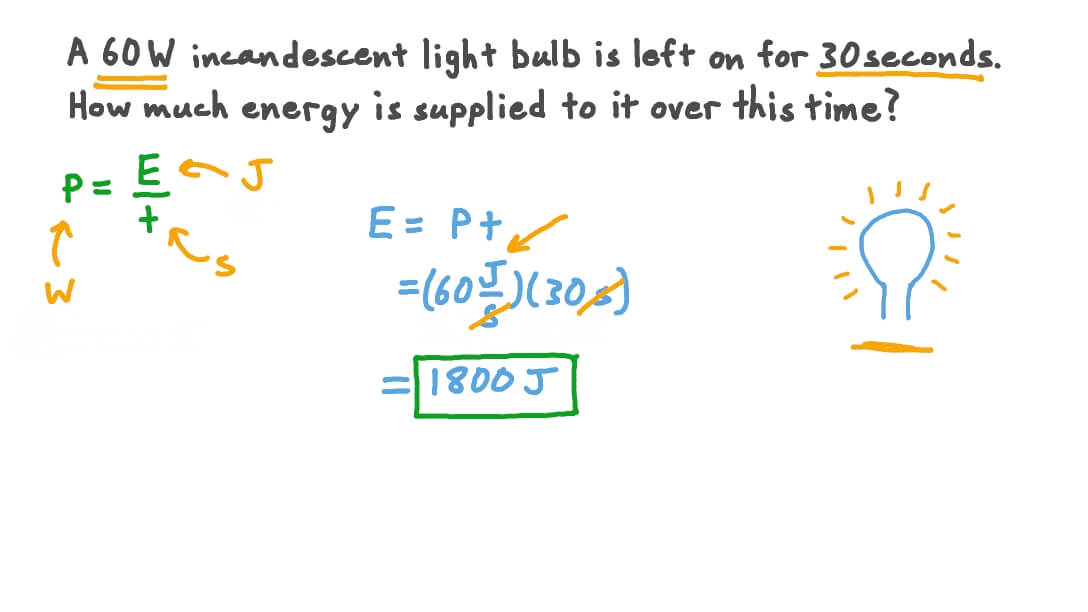 A 60W incandescent light bulb is left on for 30 seconds.
How much energy is supplied to it over this time?
P = E/t
J
W
s
E = Pt
=(60 J/s)(30 s)
= 1800 J